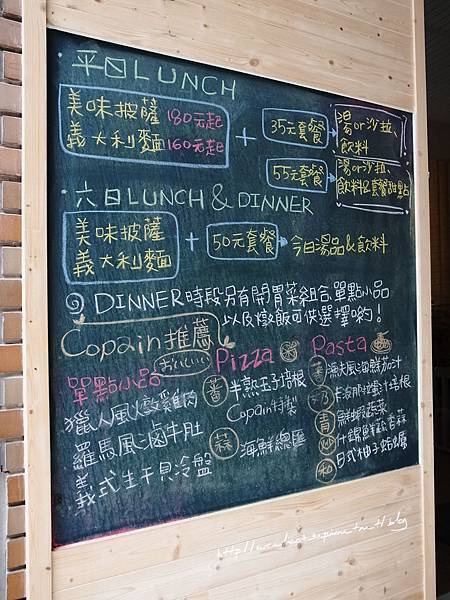 ·平日LUNCH
美味披薩 180元起
義大利麵 160元起
+
35元套餐
湯or沙拉、
飲料
55元套餐
湯or沙拉、
飲料&套餐甜點
·六日LUNCH & DINNER
美味披薩
義大利麵
+ 50元套餐 → 今日湯品&飲料
◎ DINNER時段另有開胃菜組合、單點小品
以及燉飯可供選擇喲!
Copain推薦
おいしい
單點小品
獵人風火烤雞肉
羅馬風滷牛肚
義式生干貝冷盤
Pizza
半熟玉子培根
Copain特製
蒜 海鮮總匯
Pasta
漁夫風海鮮茄汁
奶 卡波那拉蛋汁培根
青 鮮蝦蔬菜
炒 什錦鮮蔬香蒜
和 日式柚子蛤蠣